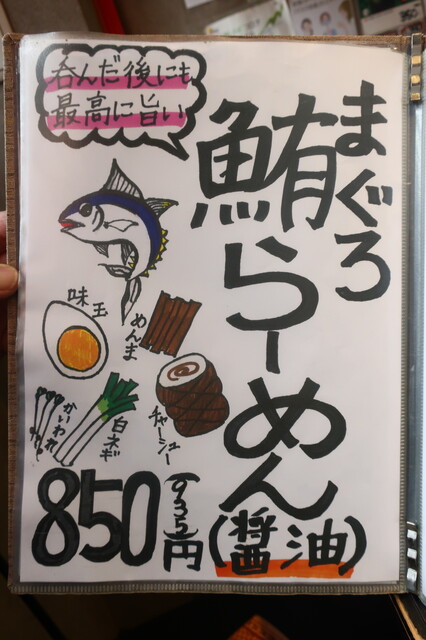 呑んだ後にも
最高に旨い
まぐろ
鮪らーめん
(醤油)
味玉
めんま
チャーシュー
白ネギ
かいわれ
850円
(935)